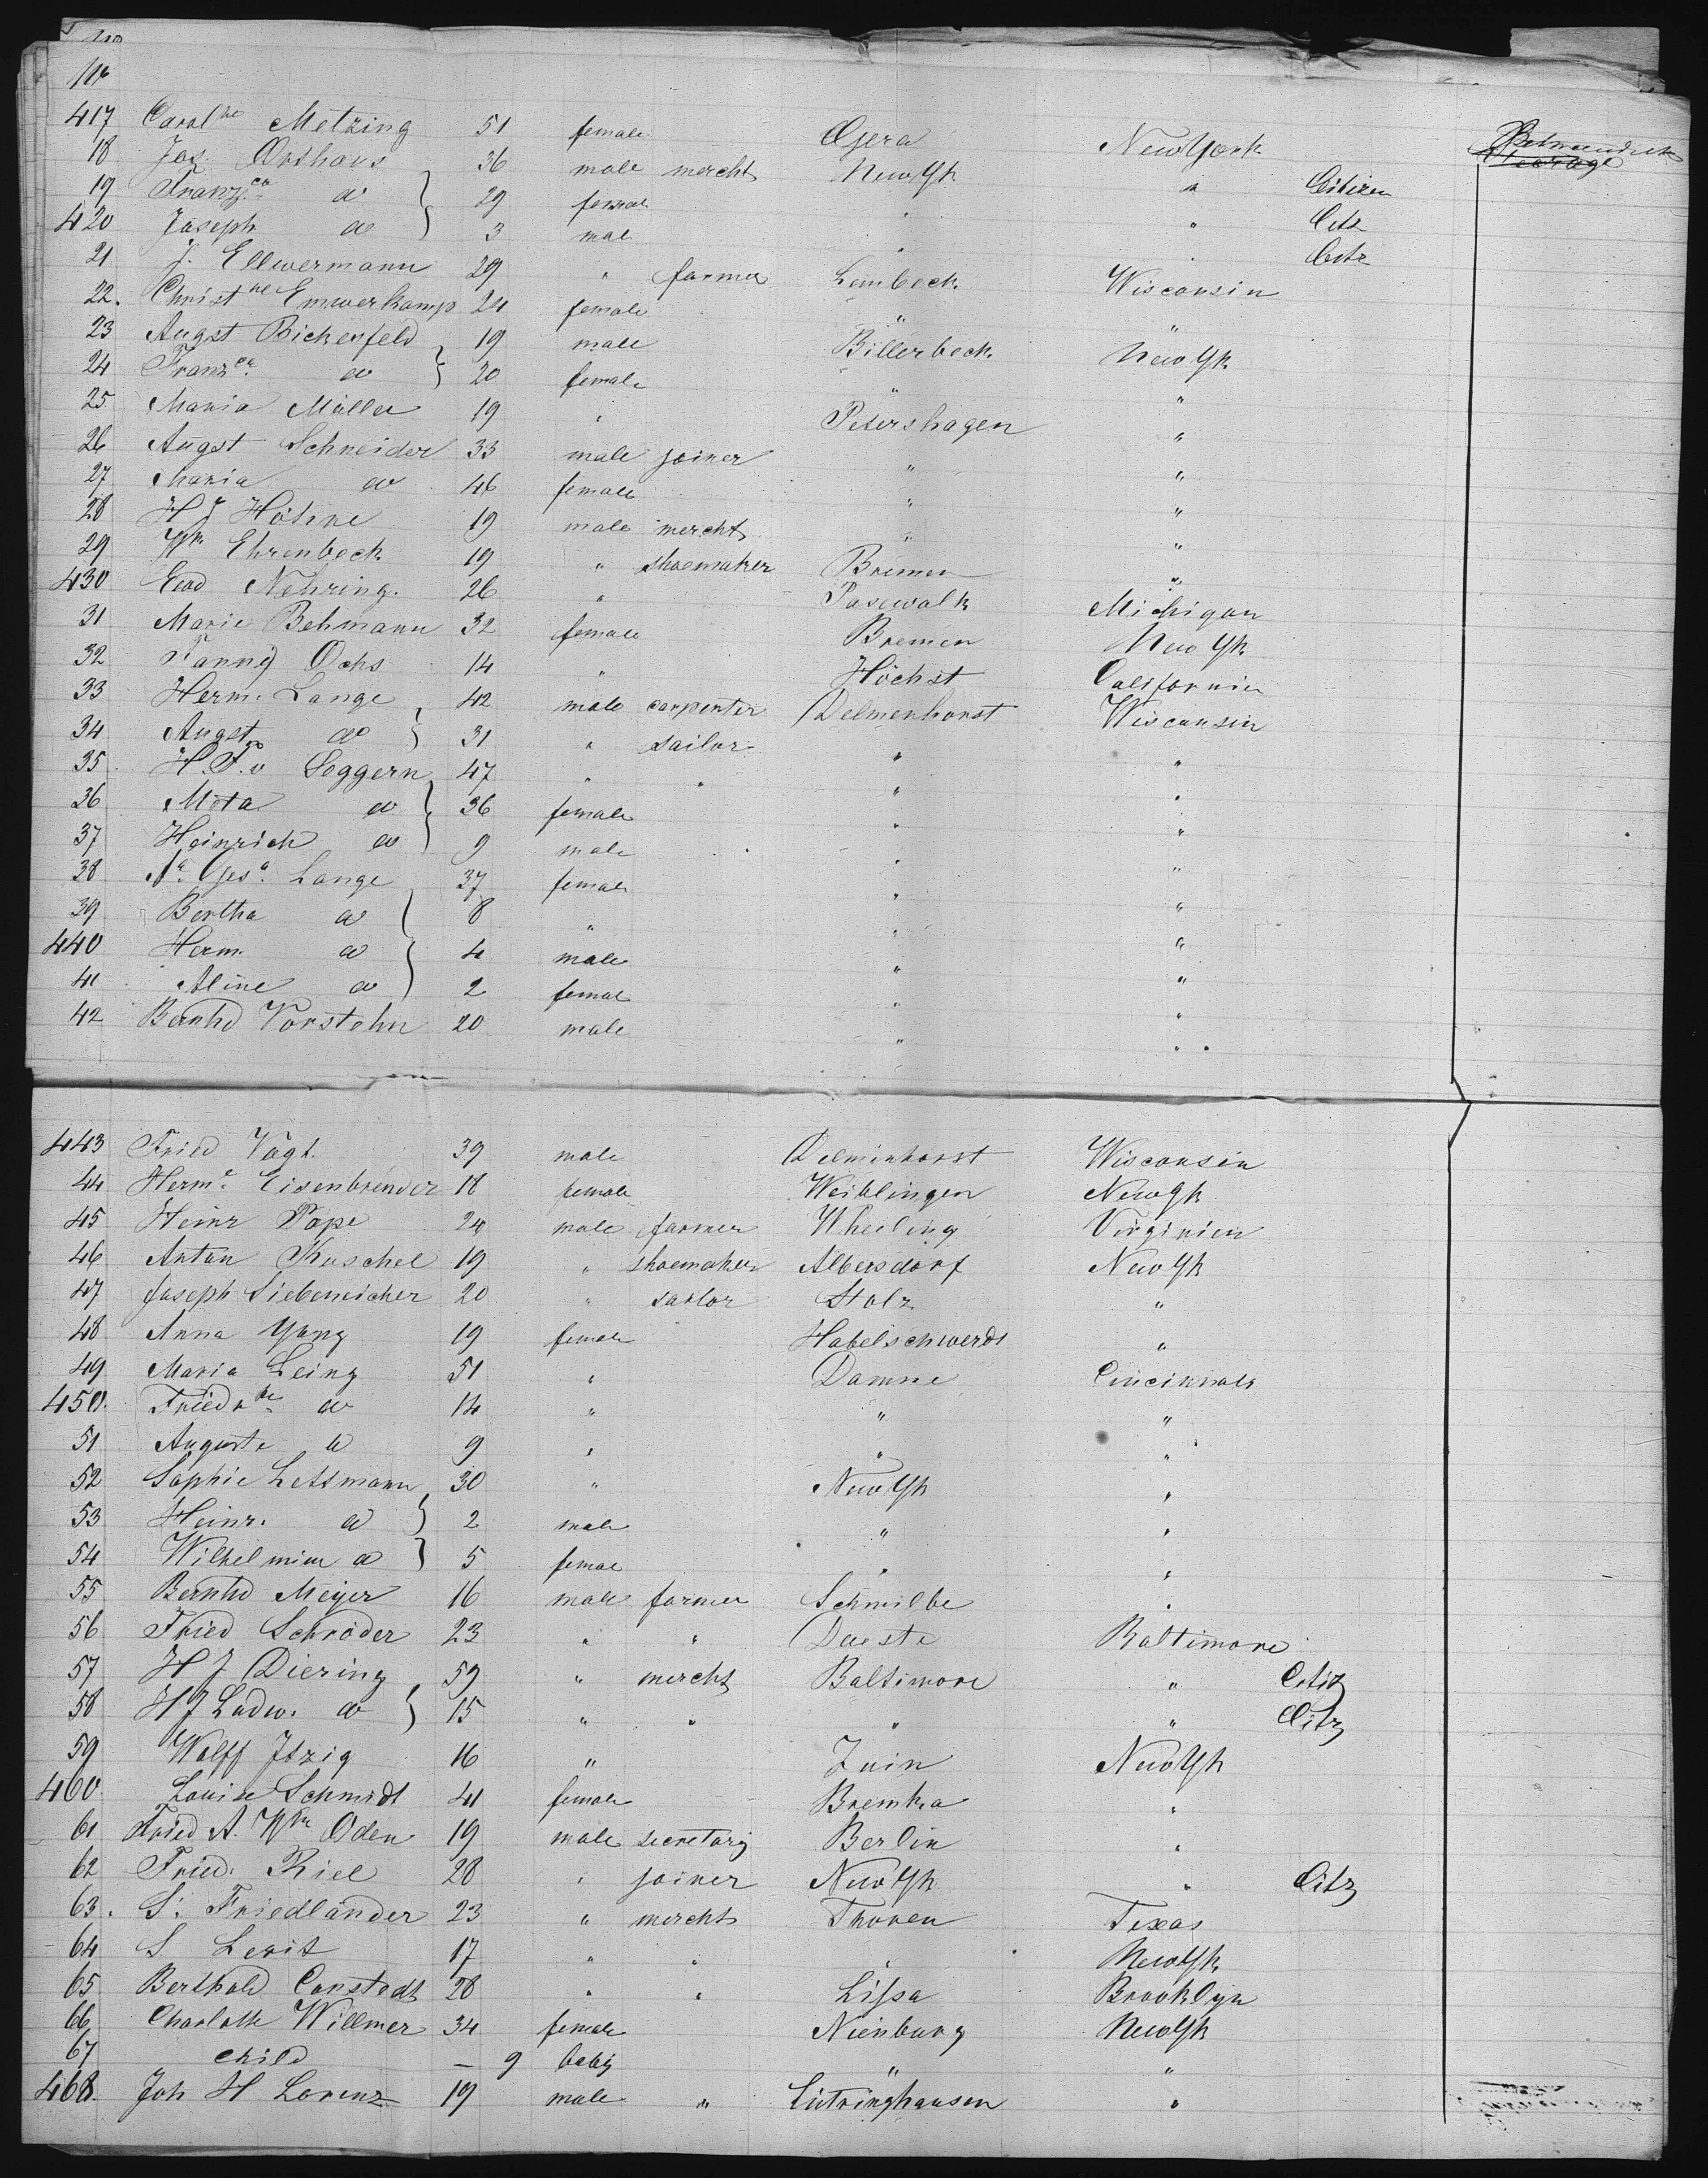 No
417 Carolne Metzing 51 female Gera New York Betweendeck
Steerage
18 Jos. Orthaus 36 male mercht New Yk " Citizen
19 Franzca do 29 female " " Citz
420 Joseph do 3 male " " Citz
21 J. Ellwermann 29 " farmer Lembeck Wisconsin
22. Christne Emwerkamp 24 female " "
23 Augst Bickenfeld 19 male Billerbeck New Yk
24 Franzca do 20 female " "
25 Maria Müller 19 " Petershagen "
26 Augst Schneider 33 male joiner " "
27 Maria do 46 female " "
28 H J Höhne 19 male mercht " "
29 Wm Ehrenbeck 19 " shoemaker Bremen "
430 Ewd Nehring. 26 " Pasewalk Michigan
31 Marie Behmann 32 female Bremen New Yk
32 Fanny Ochs 14 " Höchst Californien
33 Herm. Lange 42 male carpenter Delmenhorst Wisconsin
34 Augst do 31 " sailor " "
35 H. F. v Seggern 47 " " " "
36 Meta do 36 female " "
37 Heinrich do 9 male " "
38 Aa Gesa Lange 37 female " "
39 Bertha do 8 " " "
440 Herm. do 4 male " "
41 Aline do 2 female " "
42 Bernhd Vorstehn 20 male " "
443 Fried Vogt 39 male Delminhorst Wisconsin
44 Herme Eisenbrender 18 female Weiblingen New Yk
45 Heinr Pape 24 male farmer Wheeling Virginien
46 Anton Kuschel 19 " shoemaker Albersdorf New Yk
47 Joseph Siebeneicher 20 " sailor Stolz "
48 Anna Yung 19 female Habelschwerdt "
49 Maria Leing 51 " Damne Cincinnati
450. Friedrke do 14 " " "
51 Auguste do 9 " " "
52 Sophie Lettmann 30 " New Yk "
53 Heinr. do 2 male " "
54 Wilhelmine do 5 female " "
55 Bernhd Meyer 16 male farmer Schmilbe "
56 Fried Schröder 23 " " Daeste Baltimore
57 H J Diering 59 " mercht Baltimore " Citiz
58 H J Ludw. do 15 " " " " Citz
59 Wolff Itzig 16 " Znin New Yk
460. Louise Schmidt 41 female Bremka "
61 Fried A. Wm Oden 19 male secretary Berlin "
62 Fried. Riel 28 " joiner New Yk " Citz
63. S. Friedländer 23 " mercht Thoren Texas
64 S Levit 17 " " " New Yk
65 Berthold Constedt 28 " " Lissa Brooklyn
66 Charlotte Willmer 34 female Nienburg New Yk
67 child – 9 baby " "
468. Joh H Lorenz 19 male " Lütringhausen "